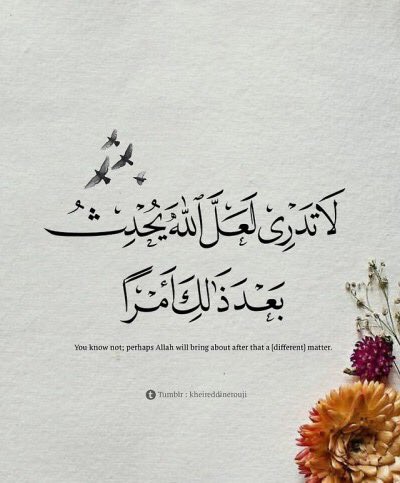 لَا تَدْرِى لَعَلَّ ٱللَّهَ يُحْدِثُ
بَعْدَ ذَٰلِكَ أَمْرًا
You know not; perhaps Allah will bring about after that a {different} matter.
Tumblr : kheireddinerouji